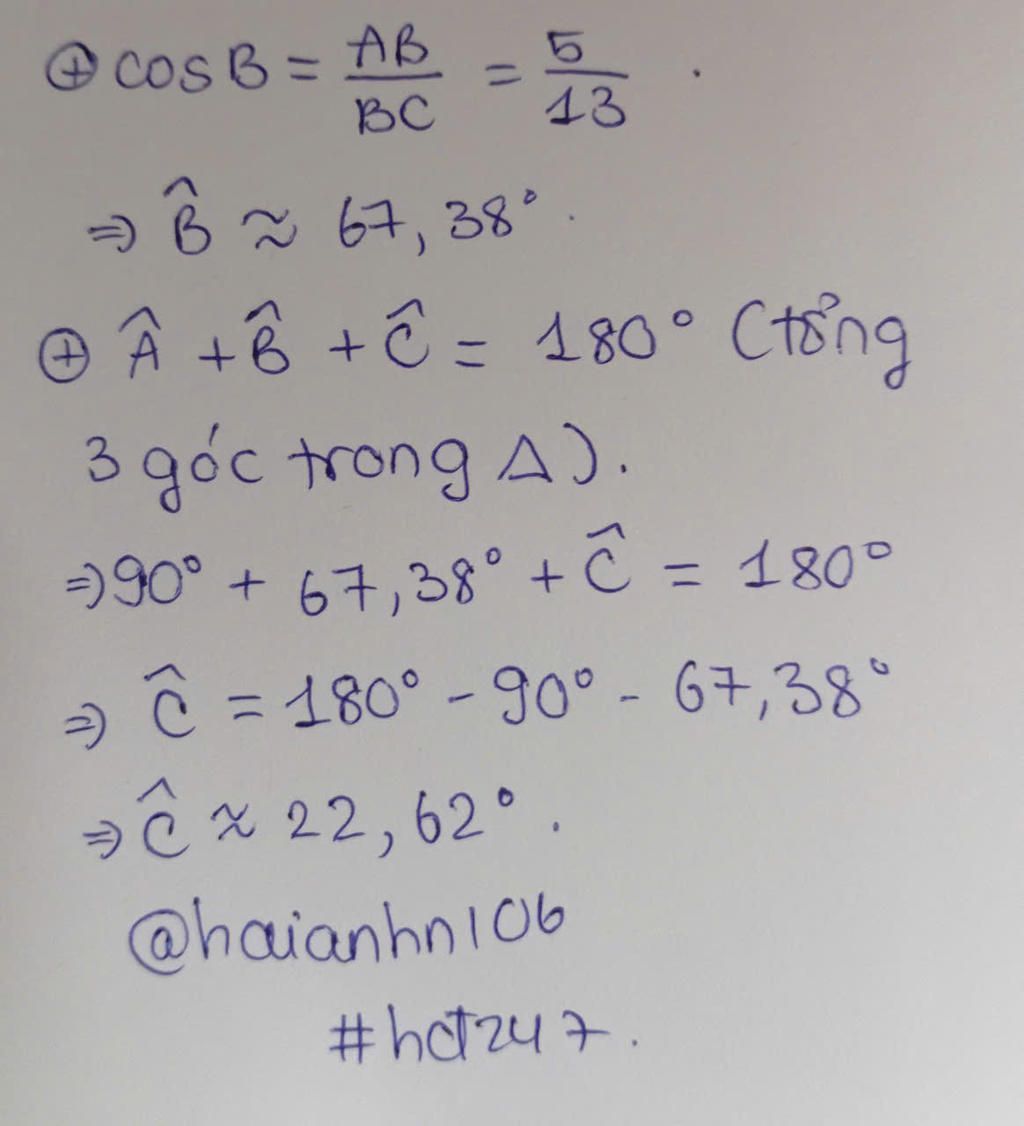 ⊕ cos B = AB/BC = 5/13 .
⇒ B̂ ≈ 67,38°.
⊕ Â + B̂ + Ĉ = 180° (tổng
3 góc trong Δ).
⇒ 90° + 67,38° + Ĉ = 180°
⇒ Ĉ = 180° - 90° - 67,38°
⇒ Ĉ ≈ 22,62°.
@haianhn106
#hct247.